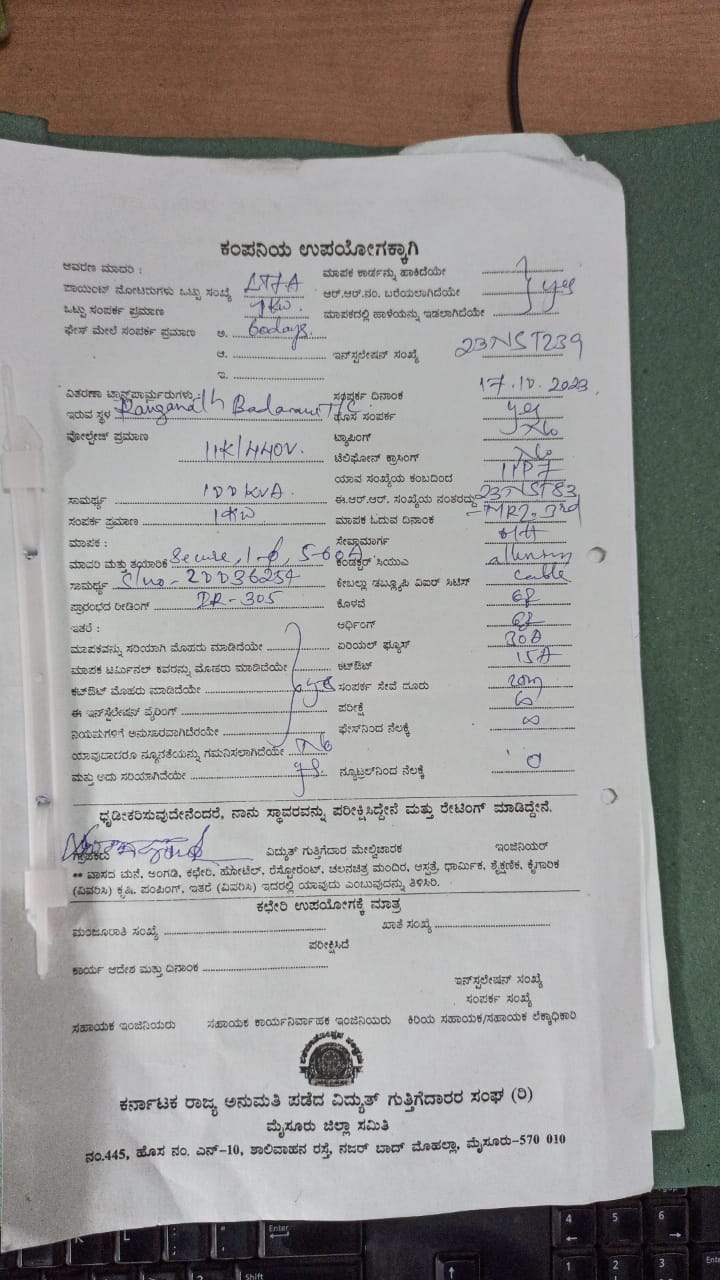 ಕಂಪನಿಯ ಉಪಯೋಗಕ್ಕಾಗಿ
ಆವರಣ ಮಾದರಿ : ಮಾಪಕ ಕಾರ್ಡನ್ನು ಹಾಕಿದೆಯೇ
ಪಾಯಿಂಟ್ ಮೋಟರುಗಳು ಒಟ್ಟು ಸಂಖ್ಯೆ ಆರ್.ಆರ್.ನಂ. ಬರೆಯಲಾಗಿದೆಯೇ yes
ಒಟ್ಟು ಸಂಪರ್ಕ ಪ್ರಮಾಣ 1KW. ಮಾಪಕದಲ್ಲಿ ಹಾಳೆಯನ್ನು ಇಡಲಾಗಿದೆಯೇ
ಫೇಸ್ ಮೇಲೆ ಸಂಪರ್ಕ ಪ್ರಮಾಣ ಅ. 60days.
ಆ. ಇನ್‌ಸ್ಟಲೇಷನ್ ಸಂಖ್ಯೆ 23NST239
ಇ.
ವಿತರಣಾ ಟ್ರಾನ್ಸ್‌ಫಾರ್ಮರುಗಳು : ಸಂಪರ್ಕ ದಿನಾಂಕ 17.10.2023.
ಇರುವ ಸ್ಥಳ Ranganath T/C ಹೊಸ ಸಂಪರ್ಕ yes
ವೋಲ್ಟೇಜ್ ಪ್ರಮಾಣ ಟ್ಯಾಪಿಂಗ್ No
11K/440V. ಟೆಲಿಫೋನ್ ಕ್ರಾಸಿಂಗ್ No
ಯಾವ ಸಂಖ್ಯೆಯ ಕಂಬದಿಂದ 11P7
ಸಾಮರ್ಥ್ಯ 100KVA. ಈ.ಆರ್.ಆರ್. ಸಂಖ್ಯೆಯ ನಂತರದ್ದು 23NST83
ಸಂಪರ್ಕ ಪ್ರಮಾಣ 1KW ಮಾಪಕ ಓದುವ ದಿನಾಂಕ 3rd
ಮಾಪಕ : ಸೇವಾಮಾರ್ಗ O/H
ಮಾದರಿ ಮತ್ತು ತಯಾರಿಕೆ Secure, 1-ϕ, 5-60A ಕಂಡಕ್ಟರ್ ಸಿಯುಎ
ಸಾಮರ್ಥ್ಯ S/no - 20036254 ಕೇಬಲ್ಲು ಡಬ್ಲ್ಯೂಪಿ ವಿಐಆರ್ ಸಿಟಿಸ್ cable
ಪ್ರಾರಂಭದ ರೀಡಿಂಗ್ IR - 305 ಕೊಳವೆ
ಇತರೆ : ಅರ್ಥಿಂಗ್
ಮಾಪಕವನ್ನು ಸರಿಯಾಗಿ ಮೊಹರು ಮಾಡಿದೆಯೇ ಏರಿಯಲ್ ಫ್ಯೂಸ್ 30A
ಮಾಪಕ ಟರ್ಮಿನಲ್ ಕವರನ್ನು ಮೊಹರು ಮಾಡಿದೆಯೇ ಕಟ್‌ಔಟ್ 15A
ಕಟ್‌ಔಟ್ ಮೊಹರು ಮಾಡಿದೆಯೇ yes ಸಂಪರ್ಕ ಸೇವೆ ದೂರು 20m
ಈ ಇನ್‌ಸ್ಟಲೇಷನ್ ವೈರಿಂಗ್ ಪರೀಕ್ಷೆ ∞
ನಿಯಮಗಳಿಗೆ ಅನುಸಾರವಾಗಿದೆಯೇ ಫೇಸ್‌ನಿಂದ ನೆಲಕ್ಕೆ ∞
ಯಾವುದಾದರೂ ನ್ಯೂನತೆಯನ್ನು ಗಮನಿಸಲಾಗಿದೆಯೇ No
ಮತ್ತು ಅದು ಸರಿಯಾಗಿದೆಯೇ yes. ನ್ಯೂಟ್ರಲ್‌ನಿಂದ ನೆಲಕ್ಕೆ 0
ಧೃಡೀಕರಿಸುವುದೇನೆಂದರೆ, ನಾನು ಸ್ಥಾವರವನ್ನು ಪರೀಕ್ಷಿಸಿದ್ದೇನೆ ಮತ್ತು ರೇಟಿಂಗ್ ಮಾಡಿದ್ದೇನೆ.
ಗ್ರಾಹಕರು ವಿದ್ಯುತ್ ಗುತ್ತಿಗೆದಾರ ಮೇಲ್ವಿಚಾರಕ ಇಂಜಿನಿಯರ್
** ವಾಸದ ಮನೆ, ಅಂಗಡಿ, ಕಛೇರಿ, ಹೋಟೆಲ್, ರೆಸ್ಟೋರೆಂಟ್, ಚಲನಚಿತ್ರ ಮಂದಿರ, ಆಸ್ಪತ್ರೆ, ಧಾರ್ಮಿಕ, ಶೈಕ್ಷಣಿಕ, ಕೈಗಾರಿಕ
(ವಿವರಿಸಿ) ಕೃಷಿ, ಪಂಪಿಂಗ್, ಇತರೆ (ವಿವರಿಸಿ) ಇದರಲ್ಲಿ ಯಾವುದು ಎಂಬುವುದನ್ನು ತಿಳಿಸಿರಿ.
ಕಛೇರಿ ಉಪಯೋಗಕ್ಕೆ ಮಾತ್ರ
ಮಂಜೂರಾತಿ ಸಂಖ್ಯೆ ಖಾತೆ ಸಂಖ್ಯೆ
ಪರೀಕ್ಷಿಸಿದೆ
ಕಾರ್ಯ ಆದೇಶ ಮತ್ತು ದಿನಾಂಕ
ಇನ್‌ಸ್ಟಲೇಷನ್ ಸಂಖ್ಯೆ
ಸಂಪರ್ಕ ಸಂಖ್ಯೆ
ಸಹಾಯಕ ಇಂಜಿನಿಯರು ಸಹಾಯಕ ಕಾರ್ಯನಿರ್ವಾಹಕ ಇಂಜಿನಿಯರು ಕಿರಿಯ ಸಹಾಯಕ/ಸಹಾಯಕ ಲೆಕ್ಕಾಧಿಕಾರಿ
ಕರ್ನಾಟಕ ರಾಜ್ಯ ಅನುಮತಿ ಪಡೆದ ವಿದ್ಯುತ್ ಗುತ್ತಿಗೆದಾರರ ಸಂಘ (ರಿ)
ಮೈಸೂರು ಜಿಲ್ಲಾ ಸಮಿತಿ
ನಂ.445, ಹೊಸ ನಂ. ಎನ್-10, ಶಾಲಿವಾಹನ ರಸ್ತೆ, ನಜರ್ ಬಾದ್ ಮೊಹಲ್ಲಾ, ಮೈಸೂರು-570 010
Enter
Shift
4 5 6
1 2 3